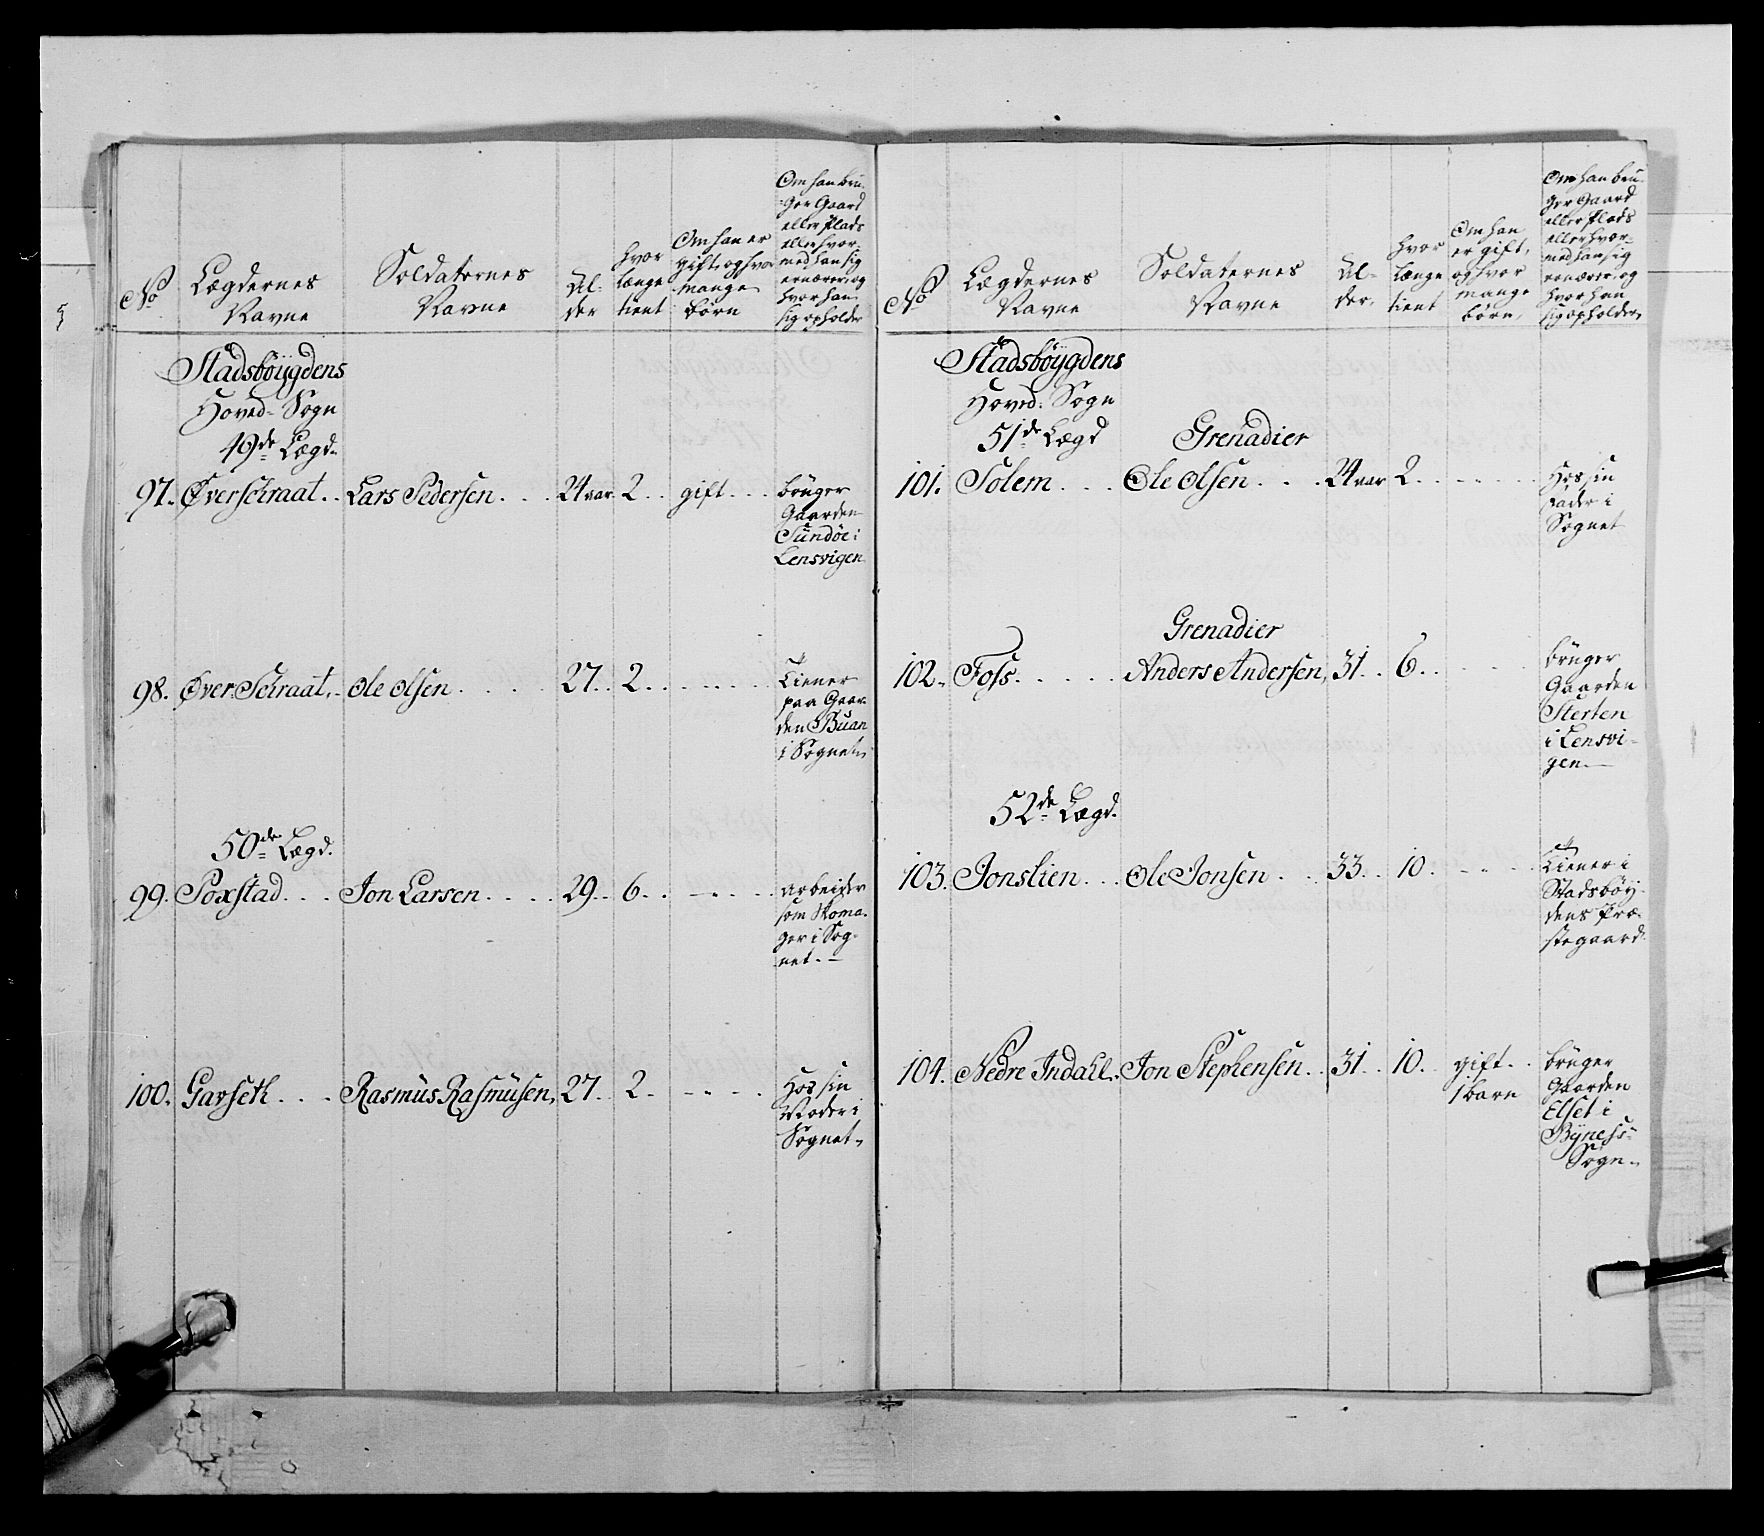 No
Lægdernes
Navne
Soldaternes
Navne
Al-
der
hvor
længe
tient
Om han er
gift, og hvor
mange
börn
Om han bru-
ger Gaard
eller Plads
eller hvor-
med han sig
ernærer, og
hvor han
sig opholder
Stadsböygdens
Hoved-Sogn
49de Lægd.
97. Øverschraat.. Lars Pedersen... 24 aar. 2.. gift... brüger
Gaarden
Sundöe i
Lensvigen
98. Øver Schraat,. Ole Olsen..... 27.. 2....... Tiener
paa Gaar-
den Buan
i Sognet,
50de Lægd.
99. Poxstad... Jon Larsen.... 29.. 6.. -... arbeider
som Skoma-
ger i Sog-
net.-
100. Garseth... Rasmus Rasmüsen, 27.. 2.. -... Hos sin
Moder i
Sognet.
No
Lægdernes
Navne
Soldaternes
Navne
Al-
der,
hvor
længe
tient
Om han
er gift,
og hvor
mange
börn,
Om han bru-
ger Gaard
eller Plads
eller hvor-
med han sig
ernærer, og
hvor han
sig opholder,
Stadsböygdens
Hoved-Sogn
51de Lægd
Grenadier
101. Solem... Ole Olsen... 24 aar 2...... Hos sin
Fader i
Sognet
Grenadier
102. Foss..... Anders Andersen, 31.. 6..... brüger
Gaarden
Sterten
i Lensvi-
gen.-
52de Lægd.
103. Jonslien... Ole Jonsen... 33.. 10..... Tiener i
Stadsböy-
dens Præ-
stegaard.
104. Nedre Indahl.. Jon Stephensen.. 31.. 10.. gift... brüger
1 barn
Gaarden
Elset i
Bÿness-
Sogn.